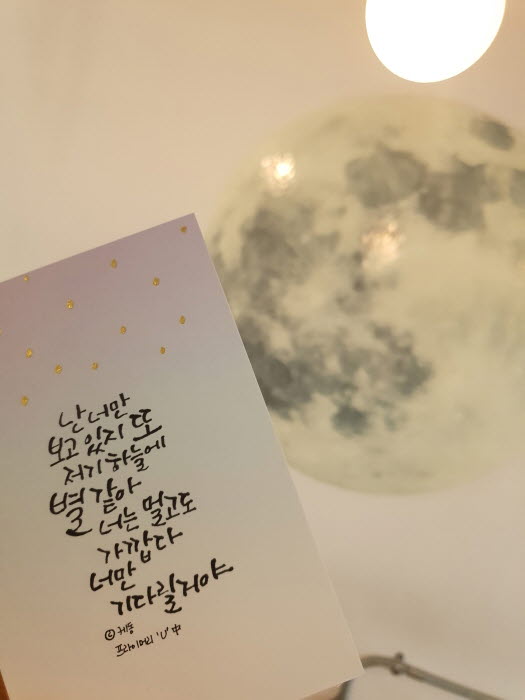 난 너만
보고 있지 또
저기 하늘에
별 같아
너는 멀고도
가깝다
너만
기다릴거야
ⓒ 케동
프라이머리 'U' 中